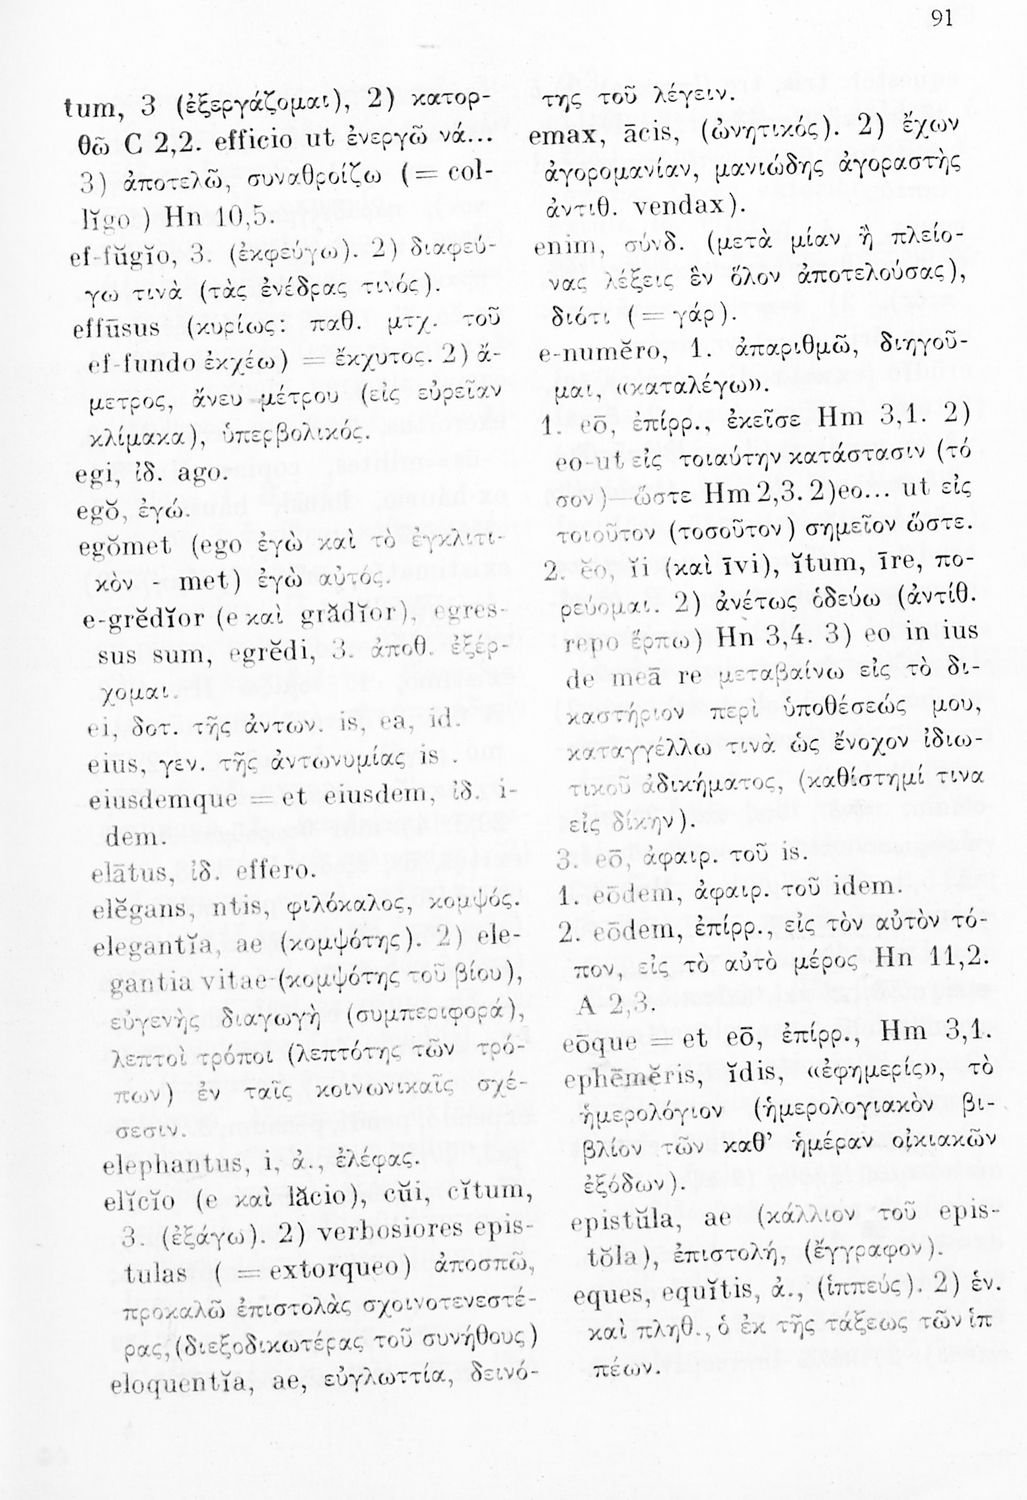 91
tum, 3 (ἐξεργάζομαι), 2) κατορ-
θῶ C 2,2. efficio ut ἐνεργῶ νά...
3) ἀποτελῶ, συναθροίζω (= col-
lĭgo ) Hn 10,5.
ef-fŭgĭo, 3. (ἐκφεύγω). 2) διαφεύ-
γω τινὰ (τὰς ἐνέδρας τινός).
effūsus (κυρίως: παθ. μτχ. τοῦ
ef-fundo ἐκχέω) = ἔκχυτος. 2) ἄ-
μετρος, ἄνευ μέτρου (εἰς εὐρεῖαν
κλίμακα), ὑπερβολικός.
egi, ἰδ. ago.
egŏ, ἐγώ.
egŏmet (ego ἐγὼ καὶ τὸ ἐγκλιτι-
κὸν - met) ἐγὼ αὐτός.
e-grĕdĭor (e καὶ grădĭor), egres-
sus sum, egrĕdi, 3. ἀποθ. ἐξέρ-
χομαι.
ei, δοτ. τῆς ἀντων. is, ea, id.
eius, γεν. τῆς ἀντωνυμίας is .
eiusdemque = et eiusdem, ἰδ. i-
dem.
elātus, ἰδ. effero.
elĕgans, ntis, φιλόκαλος, κομψός.
elegantĭa, ae (κομψότης). 2) ele-
gantia vitae (κομψότης τοῦ βίου),
εὐγενὴς διαγωγὴ (συμπεριφορά),
λεπτοὶ τρόποι (λεπτότης τῶν τρό-
πων) ἐν ταῖς κοινωνικαῖς σχέ-
σεσιν.
elephantus, i, ἀ., ἐλέφας.
elĭcĭo (e καὶ lăcio), cŭi, cĭtum,
3. (ἐξάγω). 2) verbosiores epis-
tulas ( = extorqueo) ἀποσπῶ,
προκαλῶ ἐπιστολὰς σχοινοτενεστέ-
ρας, (διεξοδικωτέρας τοῦ συνήθους)
eloquentĭa, ae, εὐγλωττία, δεινό-
της τοῦ λέγειν.
emax, ācis, (ὠνητικός). 2) ἔχων
ἀγορομανίαν, μανιώδης ἀγοραστὴς
ἀντιθ. vendax).
enim, σύνδ. (μετὰ μίαν ἢ πλείο-
νας λέξεις ἓν ὅλον ἀποτελούσας),
διότι (= γάρ).
e-numĕro, 1. ἀπαριθμῶ, διηγοῦ-
μαι, «καταλέγω».
1. eō, ἐπίρρ., ἐκεῖσε Hm 3,1. 2)
eo-ut εἰς τοιαύτην κατάστασιν (τό
σον) ὥστε Hm 2,3. 2)eo... ut εἰς
τοιοῦτον (τοσοῦτον) σημεῖον ὥστε.
2. ĕo, ĭi (καὶ īvi), ĭtum, īre, πο-
ρεύομαι. 2) ἀνέτως ὁδεύω (ἀντίθ.
repo ἕρπω) Hn 3,4. 3) eo in ius
de meā re μεταβαίνω εἰς τὸ δι-
καστήριον περὶ ὑποθέσεώς μου,
καταγγέλλω τινὰ ὡς ἔνοχον ἰδιω-
τικοῦ ἀδικήματος, (καθίστημί τινα
εἰς δίκην).
3. eō, ἀφαιρ. τοῦ is.
1. eōdem, ἀφαιρ. τοῦ idem.
2. eōdem, ἐπίρρ., εἰς τὸν αὐτὸν τό-
πον, εἰς τὸ αὐτὸ μέρος Hn 11,2.
A 2,3.
eōque = et eō, ἐπίρρ., Hm 3,1.
ephēmĕris, ĭdis, «ἐφημερίς», τὸ
ἡμερολόγιον (ἡμερολογιακὸν βι-
βλίον τῶν καθ’ ἡμέραν οἰκιακῶν
ἐξόδων).
epistŭla, ae (κάλλιον τοῦ epis-
tŏla), ἐπιστολή, (ἔγγραφον).
eques, equĭtis, ἀ., (ἱππεύς). 2) ἑν.
καὶ πληθ., ὁ ἐκ τῆς τάξεως τῶν ἱπ
πέων.